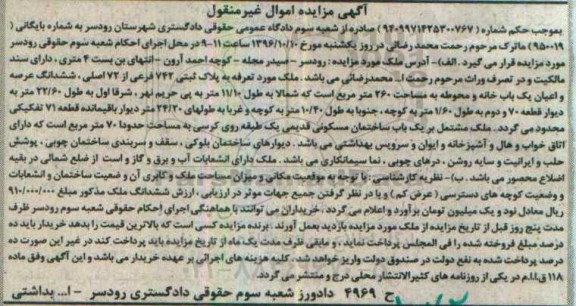 آگهی مزایده اموال غیرمنقول
بموجب حکم شماره (۹۴۰۹۹۷۱۴۲۵۳۰۰۷۶۷) صادره از شعبه سوم دادگاه عمومی حقوقی دادگستری شهرستان رودسر به شماره بایگانی (
۹۵۰۰۱۹) ماترک مرحوم رحمت محمد رضائی در روز یکشنبه مورخ ۱۳۹۶/۱۰/۱۰ ساعت ۱۱-۹ در محل اجرای احکام شعبه سوم حقوقی رودسر
مورد مزایده قرار می گیرد. الف)- آدرس ملک مورد مزایده : رودسر - سیدر مجله - کوچه احمد آرون - انتهای بن بست ۴ متری . دارای سند
مالکیت و در تصرف وراث مرحوم رحمت ا... محمدرضائی می باشد. ملک مورد تعرفه به پلاک ثبتی ۷۴۲ فرعی از ۷۲ اصلی . ششدانگ عرصه
و اعیان یک باب خانه و محوطه به مساحت ۲۶۰ متر مربع است که شمالا به طول ۱۱/۱۰ متر به پی حریم نهر . شرقا اول به طول ۲۲/۶۰ متر به
دیوار قطعه ۷۰ و دوم به طول ۱/۶۰ متر به کوچه . جنوبا به طول ۱۰/۴۰ متر به کوچه و غربا به طولهای ۲۴/۲۰ متر دیوار باقیمانده قطعه ۷۱ تفکیکی
محدود می گردد. ملک مشتمل بر یک باب ساختمان مسکونی قدیمی یک طبقه روی کرسی به مساحت حدودا ۷۰ متر مربع است که دارای
اتاق خواب و هال و آشپزخانه و ایوان و سرویس بهداشتی می باشد . دیوارهای ساختمان بلوکی . سقف و سربندی ساختمان چوبی . پوشش
حلب و ایرانیت و سایه روشن . درهای چوبی . نما سیمانکاری می باشد . ملک دارای انشعابات آب و برق و گاز و است از ضلع شمالی در بقیه
اضلاع محصور می باشد. ب)- نظریه کارشناسی : با توجه به موقعیت مکانی و میزان مساحت ملک و کابری آن و ضعیت ساختمان و انشعابات
و وضعیت کوچه های دسترسی (عرض کم) و با در نظر گرفتن جمیع جهات موثر در ارزیابی . ارزش ششدانگ ملک مذکور مبلغ ۹۱۰/۰۰۰/۰۰۰
ریال معادل نود و یک میلیون تومان برآورد و اعلام می گردد . خریداران می توانند با هماهنگی اجرای احکام حقوقی شعبه سوم رودسر ظرف
مدت پنج روز قبل از تاریخ مزایده از ملک مورد مزایده بازدید بعمل آورند. برنده مزایده کسی است که بالاترین قیمت را بدهد خریدار باید ده
درصد مبلغ فروخته شده را فی المجلس پرداخت نماید . و مابقی ظرف مدت یک ماه از تاریخ مزایده باید پرداخت کند در غیر این صورت ده
درصد پرداخت شده به نفع دولت در صندوق دولت واریز خواهد شد. کلیه هزینه های اجرائی بر عهده خریدار می باشد و این آگهی وفق ماده
۱۱۸ ق.ا.م در یکی از روزنامه های کثیرالانتشار محلی درج و منتشر می گردد.
ح ۴۹۶۹ دادورز شعبه سوم حقوقی دادگستری رودسر - ا... بداشتی